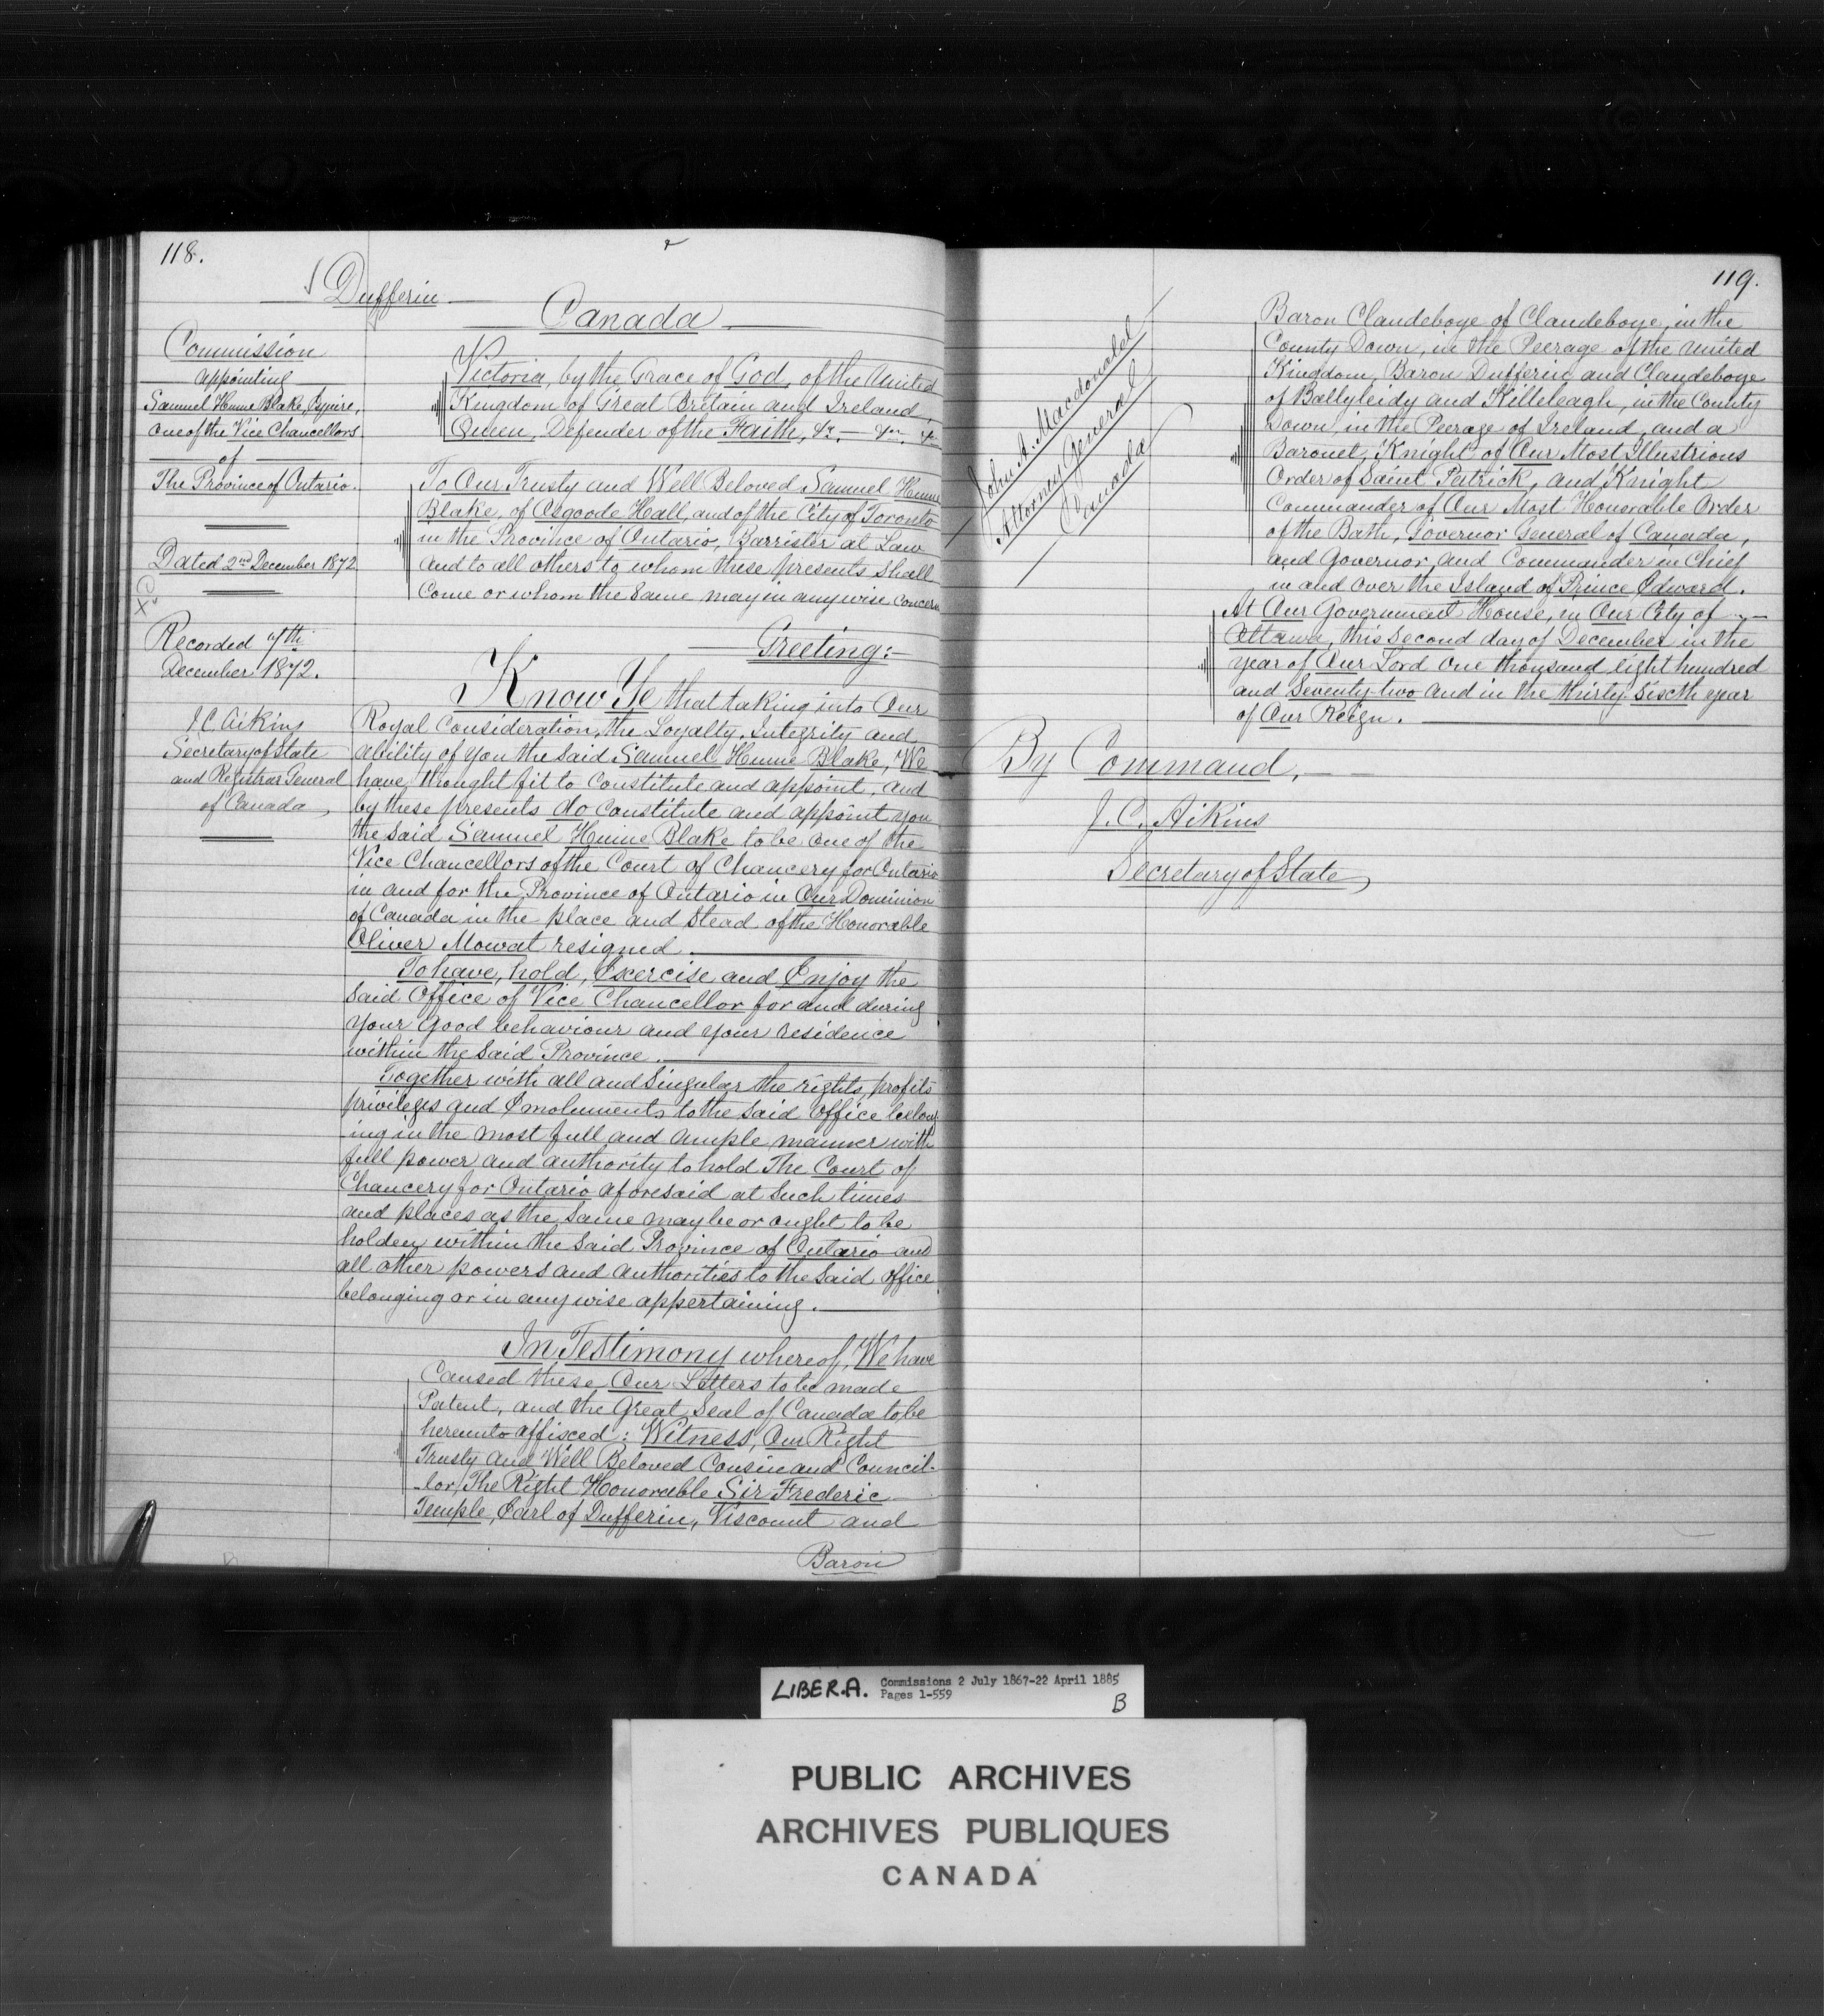 118.
Dufferin
Canada
Commission
appointing
Samuel Hume Blake, Esquire,
One of the Vice Chancellors
of
The Province of Ontario.
Dated 2nd December 1872
Recorded 7th
December 1872.
J.C. Aikins
Secretary of State
and Registrar General
of Canada,
Victoria, by the Grace of God, of the United
Kingdom of Great Britain and Ireland,
Queen, Defender of the Faith, &c, — &c, &c
To Our Trusty and Well Beloved Samuel Hume
Blake, of Osgoode Hall, and of the City of Toronto
in the Province of Ontario, Barrister at Law
and to all others to whom these presents shall
Come or whom the Same may in any wise Concern
Greeting:—
Know Ye that taking into Our
Royal Consideration, the Loyalty, Integrity and
ability of you the Said Samuel Hume Blake, We
have thought fit to Constitute and appoint, and
by these presents do Constitute and appoint you
the Said Samuel Hume Blake to be One of the
Vice Chancellors of the Court of Chancery for Ontario
in and for the Province of Ontario in Our Dominion
of Canada in the place and Stead of the Honorable
Oliver Mowat resigned.
To have, hold, Exercise and Enjoy the
Said Office of Vice Chancellor for and during
Your Good behaviour and your residence
within the Said Province.
Together with all and Singular the rights, profits
privileges and Emoluments to the Said Office belong
-ing in the most full and ample manner with
full power and authority to hold The Court of
Chancery for Ontario aforesaid at Such times
and places as the Same may be or ought to be
holden within the Said Province of Ontario and
all other powers and authorities to the Said Office
belonging or in any wise appertaining.
In Testimony whereof, We have
Caused these Our Letters to be made
Patent, and the Great Seal of Canada to be
hereunto affixed: Witness, Our Right
Trusty and Well Beloved Cousin and Council-
-lor, The Right Honorable Sir Frederic
Temple, Earl of Dufferin, Viscount and
Baron
119.
John A. Macdonald
Attorney General
Canada
Baron Clandeboye of Clandeboye, in the
County Down, in the Peerage of the United
Kingdom, Baron Dufferin and Clandeboye
of Ballyleidy and Killeleagh, in the County
Down, in the Peerage of Ireland, and a
Baronet, Knight of Our Most Illustrious
Order of Saint Patrick, and Knight
Commander of Our Most Honorable Order
of the Bath, Governor General of Canada,
and Governor and Commander in Chief
in and over the Island of Prince Edward.
At Our Government House, in Our City of
Ottawa, this Second day of December in the
year of Our Lord One thousand eight hundred
and Seventy-two and in the thirty-Sixth year
of Our Reign.
By Command,
J. C. Aikins
Secretary of State
LIBER.A. Commissions 2 July 1867-22 April 1885
Pages 1-559
B
PUBLIC ARCHIVES
ARCHIVES PUBLIQUES
CANADA